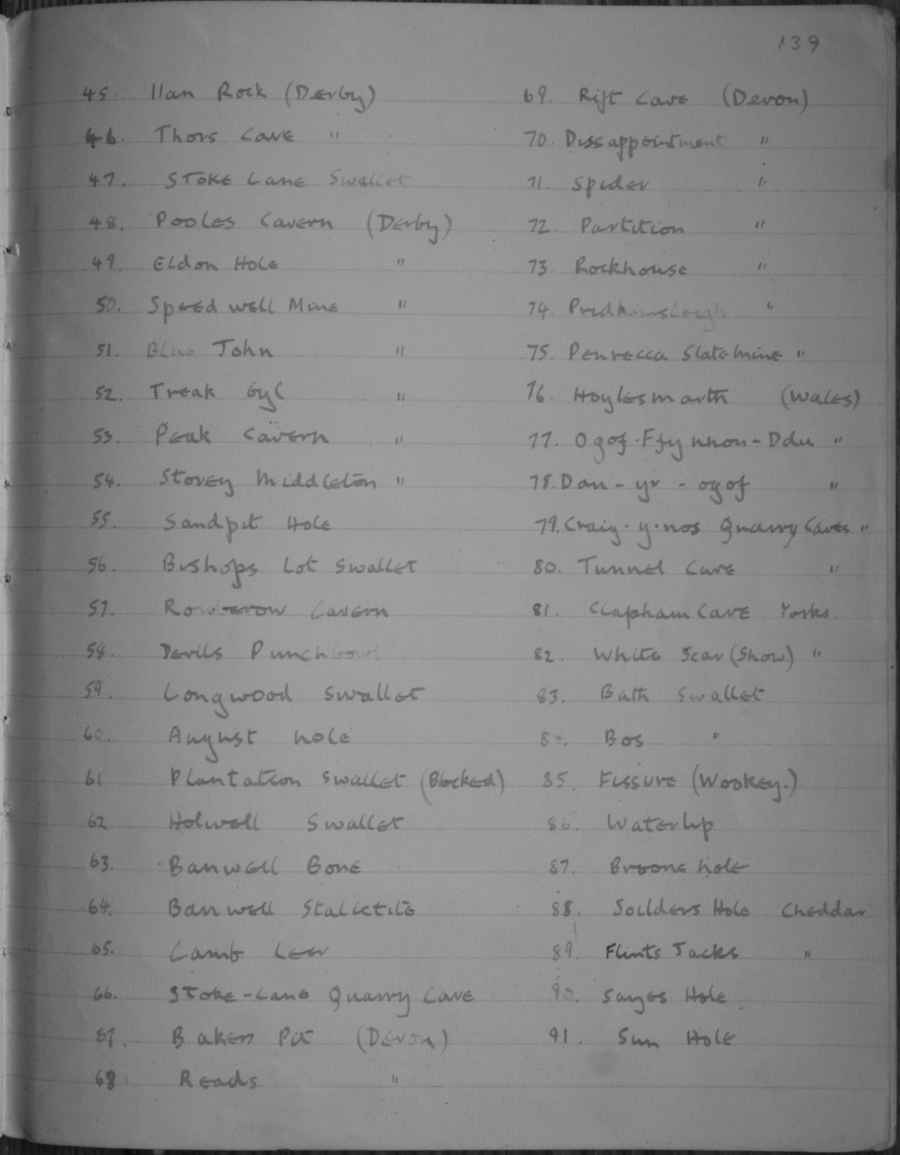 139
45. Ilan Rock (Derby)
46. Thors Cave "
47. Stoke Lane Swallet
48. Pooles Cavern (Derby)
49. Eldon Hole "
50. Speedwell Mine "
51. Blue John "
52. Treak Gyl "
53. Peak Cavern "
54. Stoney Middleton "
55. Sandpit Hole
56. Bishops Lot Swallet
57. Rowberrow Cavern
58. Devils Punchbowl
59. Longwood Swallet
60. August hole
61 Plantation Swallet (Blocked)
62 Holwell Swallet
63. Banwell Bone
64. Banwell Stalictite
65. Lamb Leer
66. Stoke-Lane Quarry Cave
67. Bakers Pit (Devon)
68 Reads "
69. Rift Cave (Devon)
70. Dissappointment "
71. Spider "
72. Partition "
73. Rockhouse "
74. Pridhamsleigh "
75. Penrecca Slatemine "
76. Hoylesmarth (Wales)
77. Ogof-Ffynnon-Ddu "
78. Dan-yr-ogof "
79. Craig-y-nos Quarry Caves "
80. Tunnel Cave "
81. Clapham Cave Yorks.
82. White Scar (Show) "
83. Bath Swallet
84. Bos "
85. Fissure (Wookey.)
86. Waterlip
87. Broons hole
88. Soilders Hole Cheddar
89. Flints Jacks "
90. Sayes Hole.
91. Sun Hole